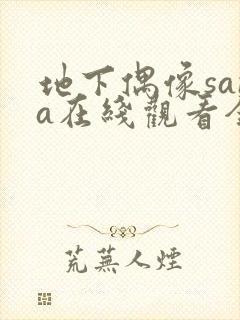 地下偶像sa
a在綫觀看
荒蕪人煙